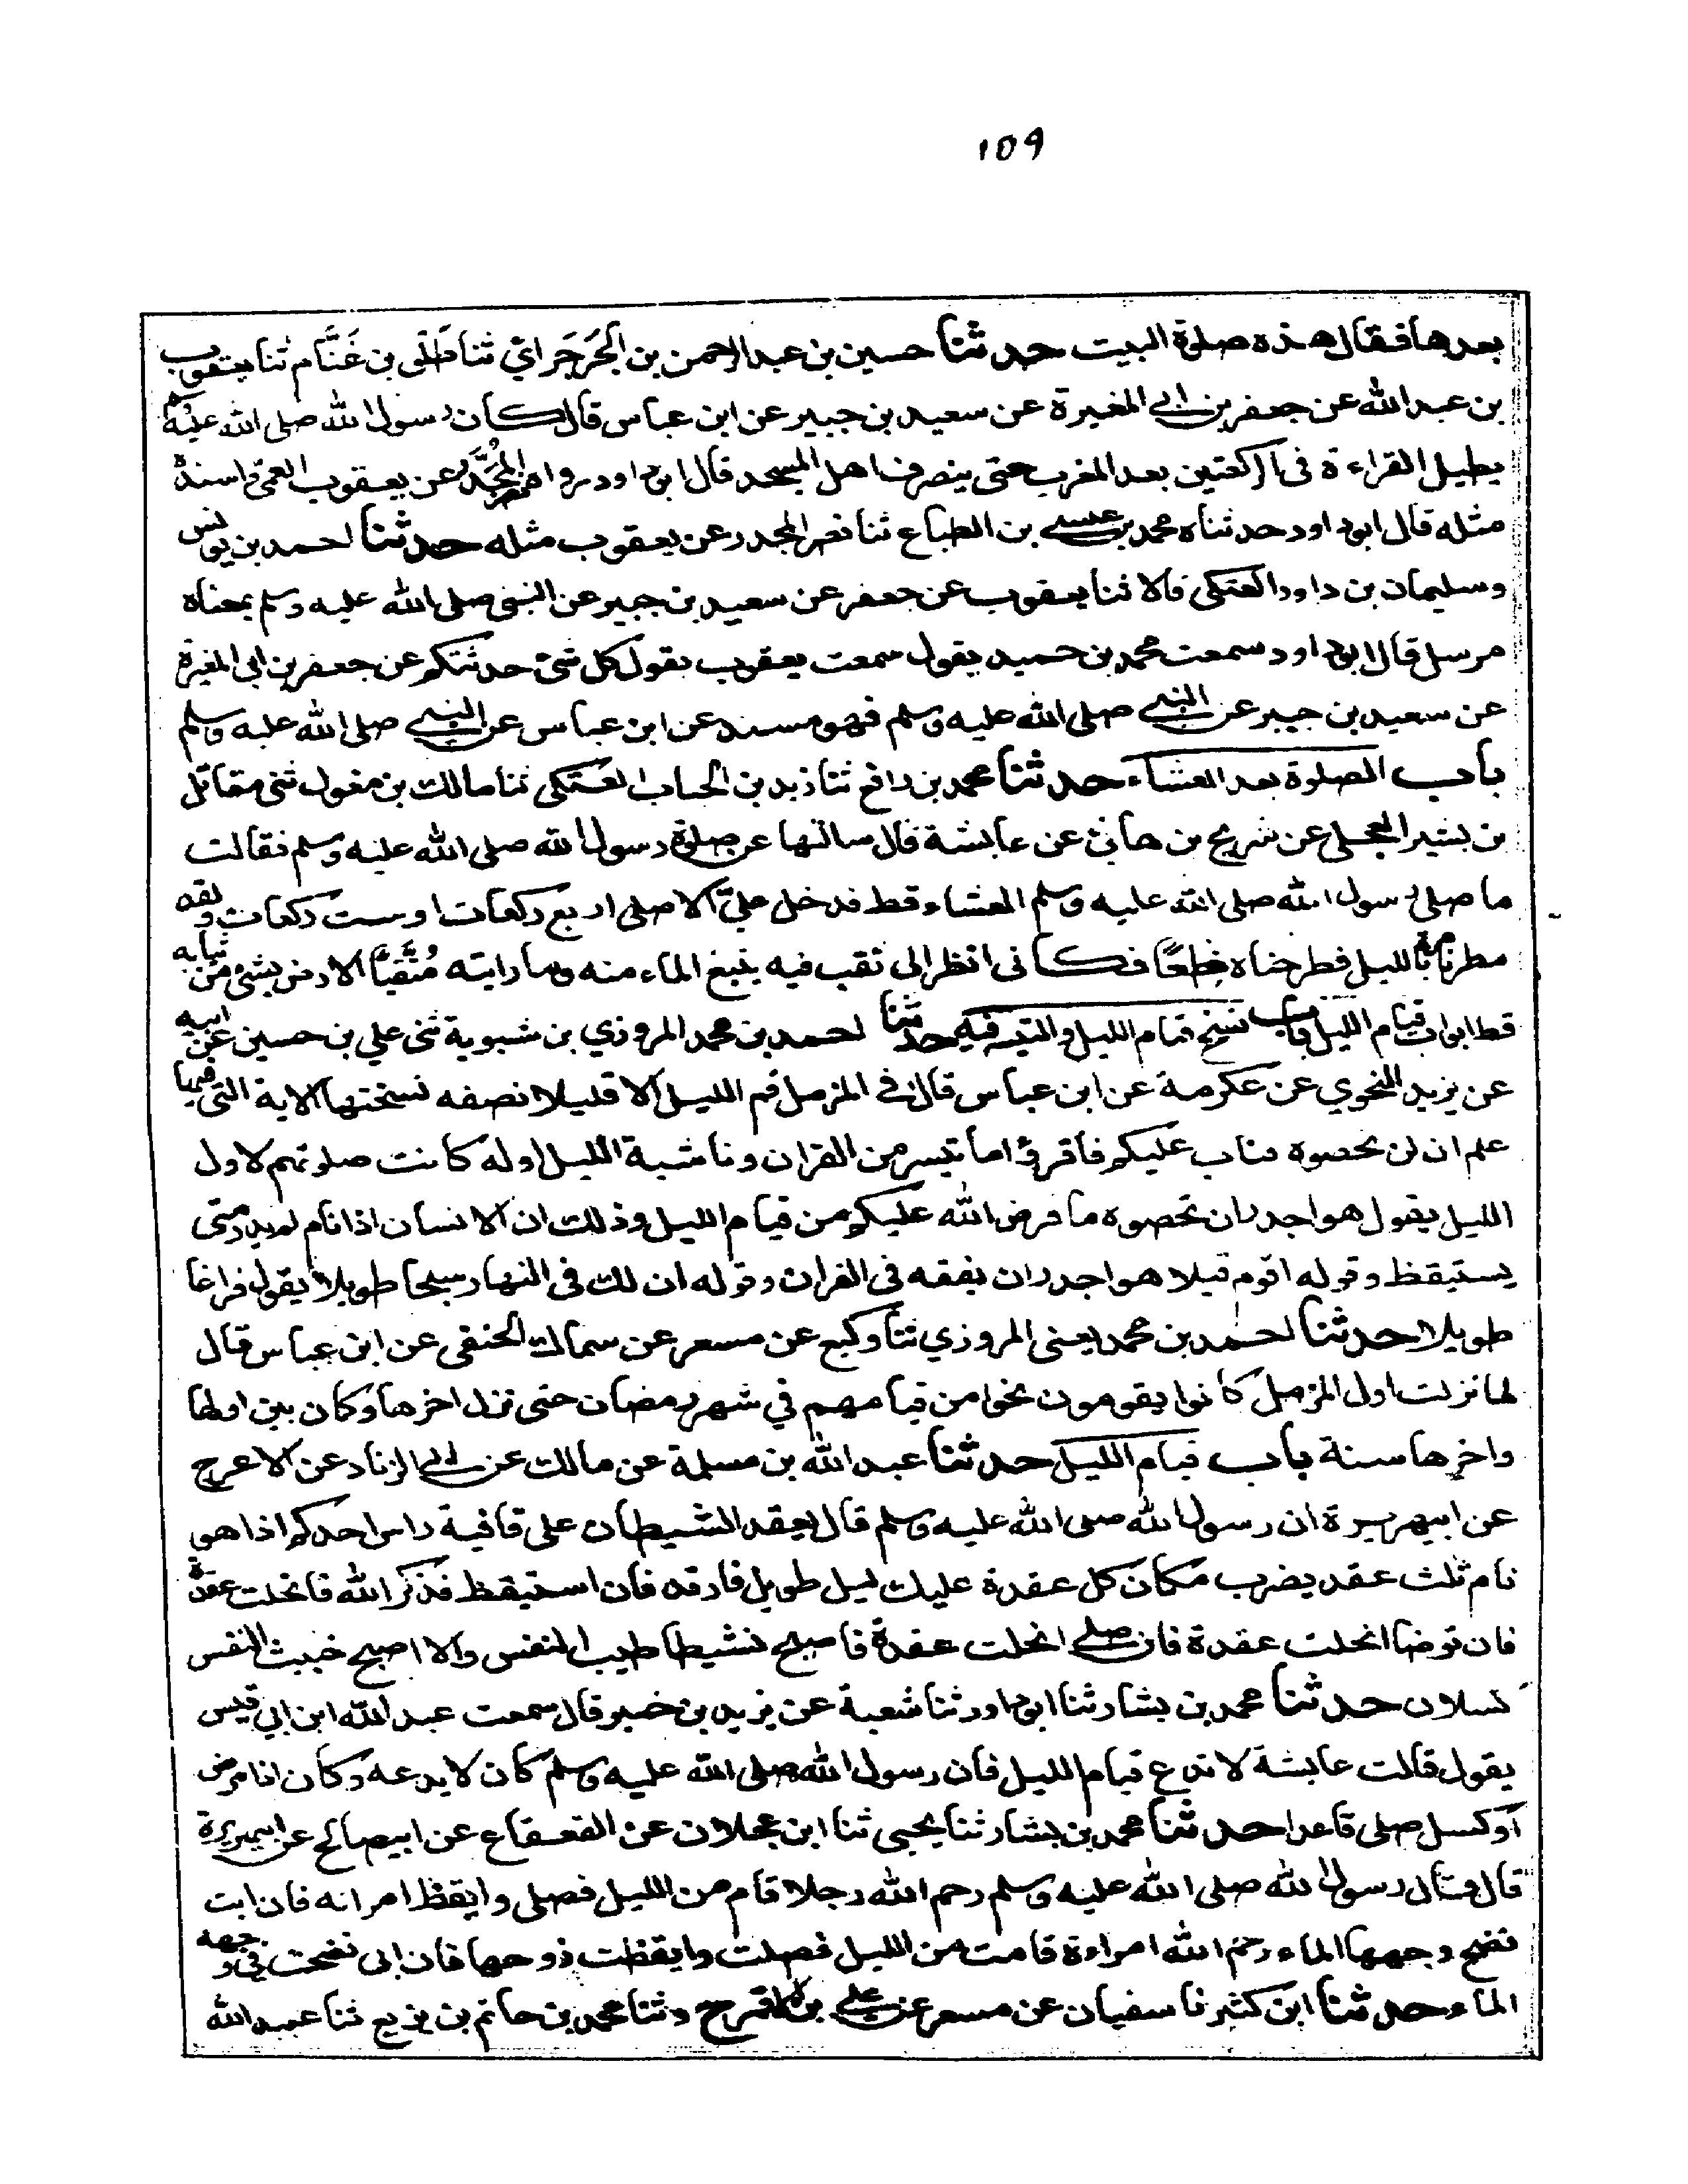 ١٥٩
بعدها فقال هذه صلوة البيت حدثنا حسين بن عبد الرحمن بن الجَرجَرائ ثنا طَلْق بن غَنَّام ثنا يعقوب
بن عبد الله عن جعفر بن ابي المغيرة عن سعيد بن جبير عن ابن عباس قال كان رسول الله صلى الله عليه
يطيل القراءة فى الركعتين بعد المغرب حتى ينصرف اهل المسجد قال ابو داود رواه نصر المُجَدَّر عن يعقوب القمى واسنده
مثله قال ابو داود حدثناه محمد بن عيسى بن الطباع ثنا نصر المجدر عن يعقوب مثله حدثنا احمد بن يونس
وسليمان بن داود العتكى قالا ثنا يعقوب عن جعفر عن سعيد بن جبير عن النبى صلى الله عليه وسلم بمعناه
مرسل قال ابو داود سمعت محمد بن حميد يقول سمعت يعقوب يقول كل شئ حدثتكم عن جعفر بن ابى المغيرة
عن سعيد بن جبير عن النبي صلى الله عليه وسلم فهو مسند عن ابن عباس عن النبي صلى الله عليه وسلم
باب الصلوة بعد العشاء حدثنا محمد بن رافع ثنا زيد بن الحباب العتكى ثنا مالك بن مغول ثنى مقاتل
بن بشير العجلى عن شريح بن هانئ عن عايشة قال سالتها عن صلوة رسول الله صلى الله عليه وسلم فقالت
ما صلى رسول الله صلى الله عليه وسلم العشاء قط فدخل عليّ الا صلى اربع ركعات او ست ركعات ولقد
مطرنا مرة بالليل فطرحناه نطعًا فكانى انظر الى ثقب فيه ينبع الماء منه وما رايته مُتَّقيًا الارض بشئ من ثيابه
قط ابواب قيام الليل باب نسخ قيام الليل والتيسير فيه حدثنا احمد بن محمد المروزي بن شبوية ثنى علي بن حسين عن ابيه
عن يزيد النحوي عن عكرمة عن ابن عباس قال في المزمل قم الليل الا قليلا نصفه نسختها الاية التى فيها
علم ان لن تحصوه فتاب عليكم فاقرؤا ما تيسر من القران وناشية الليل اوله كانت صلوتهم لاول
الليل يقول هو اجدر ان تحصوه ما فرض الله عليكم من قيام الليل وذلك ان الانسان اذا نام لم يدر متى
يستيقظ وقوله اقوم قيلا هو اجدر ان يفقه فى القران وقوله ان لك فى النهار سبحا طويلا يقول فراغا
طويلا حدثنا احمد بن محمد يعنى المروزي ثنا وكيع عن مسعر عن سماك الحنفى عن ابن عباس قال
لما نزلت اول المزمل كانوا يقومون نحوا من قيامهم في شهر رمضان حتى نزل اخرها وكان بين اولها
واخرها سنة باب قيام الليل حدثنا عبد الله بن مسلمة عن مالك عن ابي الزناد عن الاعرج
عن ابي هريرة ان رسول الله صلى الله عليه وسلم قال يعقد الشيطان على قافية راس احدكم اذا هو
نام ثلث عقد يضرب مكان كل عقدة عليك ليل طويل فارقد فان استيقظ فذكر الله فانحلت عقدة
فان توضا انحلت عقدة فان صلى انحلت عقدة فاصبح نشيطا طيب النفس والا اصبح خبيث النفس
كسلان حدثنا محمد بن بشار ثنا ابو داود ثنا شعبة عن يزيد بن خمير قال سمعت عبد الله ابن ابي قيس
يقول قالت عايشة لا تدع قيام الليل فان رسول الله صلى الله عليه وسلم كان لا يدعه وكان اذا مرض
او كسل صلى قاعدا حدثنا محمد بن بشار ثنا يحيى ثنا ابن عجلان عن القعقاع عن ابي صالح عن ابي هريرة
قال قال رسول الله صلى الله عليه وسلم رحم الله رجلا قام من الليل فصلى وايقظ امراته فان ابت
نضح وجهها الماء رحم الله امراءة قامت من الليل فصلت وايقظت زوجها فان ابى نضحت فى وجهه
الماء حدثنا ابن كثير نا سفيان عن مسعر عن علي بن الاقمر ح وثنا محمد بن حاتم بن بزيع ثنا عبيد الله